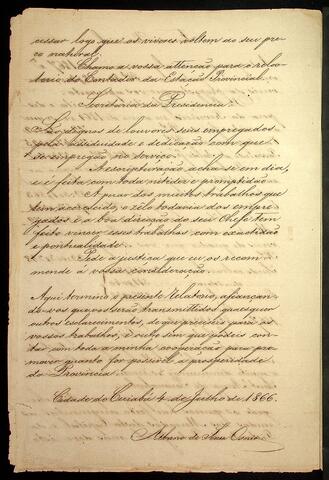 cessar logo que os viveres voltem ao seu pre-
ço natural.
Chamo a vossa attenção para o rela-
torio do Contador da Estação Provincial.
Secretaria da Presidencia.
São dignos de louvores seus empregados
pela assiduidade e dedicação com que
se empregão no serviço.
A escripturação acha-se em dia,
e é feita com toda nitidez e promptidão.
A par dos muitos trabalhos que
tem accrescido, o zelo todavia dos empre-
gados e a boa direcção do seu Chefe tem
feito vencer esses trabalhos com exactidão
e pontualidade.
Pede a justiça que eu os recom-
mende à vossa consideração.
Aqui termino o presente Relatorio, afiançan-
do-vos que vos serão transmittidos quaesquer
outros esclarecimentos, de que preciseis para os
vossos trabalhos, e outro sim que podeis con-
tar com toda a minha cooperação para pro-
mover quanto for possivel a prosperidade
da Provincia.
Cidade do Cuiabá 4 de Julho de 1866.
Albano de Souza Osorio